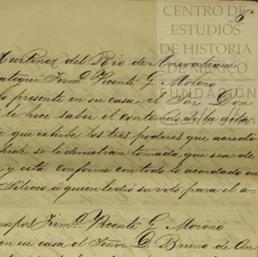 CENTRO DE
ESTUDIOS
DE HISTORIA
DE MÉXICO
FUNDACIÓN
6
Martinez del Rio de Amoategui
Firmo Vicente G Moreno
presente en su casa el Sor Don
le hice saber el contenido de la acta
que exhibe los tres poderes que acredi
pide se le demotran tomada, que sea de
y está conforme con todo lo acordado en
á quien le dio su voto para el a
Campos Firmo Vicente G Moreno
en su casa el Señor D Bruno de On